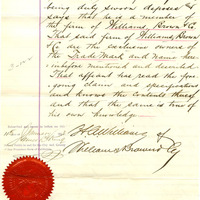 being duly sworn deposes &
says that he is a member of
the firm of Williams, Brown & Co
That said firm of Williams, Brown
& Co are the exclusive owners of
the Trade Mark and name here-
inbefore mentioned and described
That affiant has read the fore-
going claim and specifications
and knows the contents thereof
and that the same is true of
his own knowledge
Williams of
Williams Brown & Co